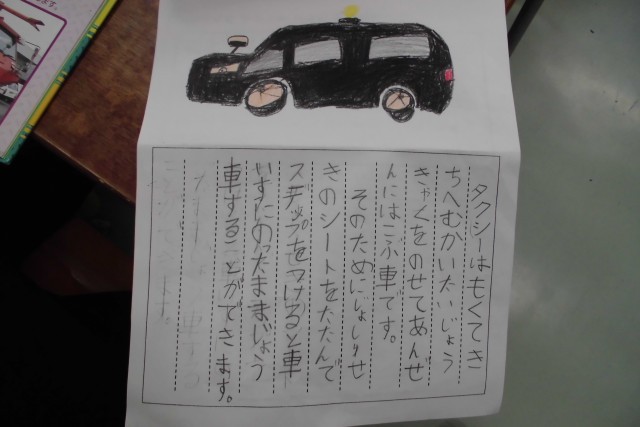 タクシーはもくてき
ちへむかいたいじょう
きゃくをのせてあんぜ
んにはこぶ車です。
そのためにじょしゅせ
きのシートをたたんで
スロップをつけると車
いすにのったままじょう
車することができます。